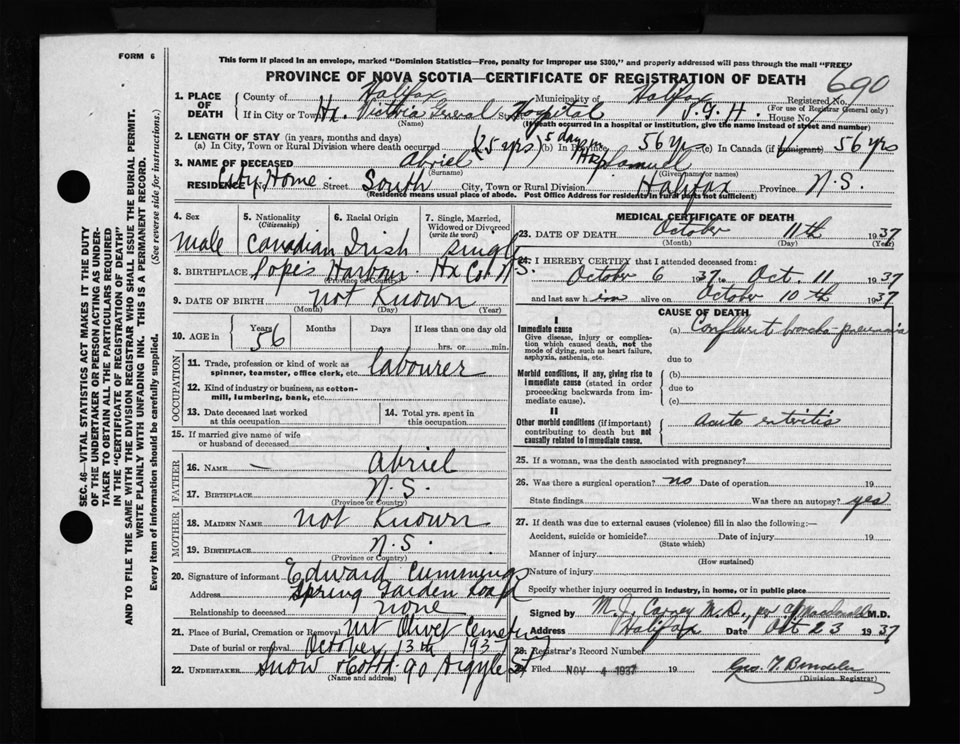 FORM 6
This form if placed in an envelope, marked "Dominion Statistics—Free, penalty for improper use $300," and properly addressed will pass through the mail "FREE"
PROVINCE OF NOVA SCOTIA—CERTIFICATE OF REGISTRATION OF DEATH
690
1. PLACE OF DEATH
County of Halifax Municipality of Halifax Registered No.
(For use of Registrar General only)
If in City or Town Hx. Victoria General Hospital St. V.G.H. House No.
(Name) (If death occurred in a hospital or institution, give the name instead of street and number)
2. LENGTH OF STAY (in years, months and days)
(a) In City, Town or Rural Division where death occurred (25 yrs) 5 days (b) In Province 56 yrs (c) In Canada (if immigrant) 56 yrs
3. NAME OF DECEASED Abriel Samuel
(Surname) (Given name or names)
RESIDENCE No. City Home Street South City, Town or Rural Division Halifax Province N.S.
(Residence means usual place of abode. Post Office Address for residents in rural parts not sufficient)
4. Sex
male
5. Nationality (Citizenship)
Canadian
6. Racial Origin
Irish
7. Single, Married, Widowed or Divorced (write the word)
single
8. BIRTHPLACE Popes Harbour Hx Co. N.S.
(Province or Country)
9. DATE OF BIRTH not Known
(Month) (Day) (Year)
10. AGE in Years 56 Months Days If less than one day old
hrs. or min.
OCCUPATION
11. Trade, profession or kind of work as spinner, teamster, office clerk, etc. labourer
12. Kind of industry or business, as cotton-mill, lumbering, bank, etc.
13. Date deceased last worked at this occupation
14. Total yrs. spent in this occupation
15. If married give name of wife or husband of deceased
FATHER
16. NAME — Abriel
17. BIRTHPLACE N.S.
(Province or Country)
MOTHER
18. MAIDEN NAME not Known
19. BIRTHPLACE N.S.
(Province or Country)
20. Signature of informant Edward Cummings
Address Spring Garden Road
Relationship to deceased none
21. Place of Burial, Cremation or Removal Mt Olivet Cemetery
Date of burial or removal October 13th 1937
22. UNDERTAKER Snow & Co Ltd. 90 Argyle St
(Name and address)
MEDICAL CERTIFICATE OF DEATH
23. DATE OF DEATH October 11th 1937
(Month) (Day) (Year)
24. I HEREBY CERTIFY that I attended deceased from:
October 6 1937 to Oct. 11 1937
and last saw him alive on October 10th 1937
CAUSE OF DEATH
I
Immediate cause
Give disease, injury or complication which caused death, not the mode of dying, such as heart failure, asphyxia, asthenia, etc.
(a) Confluent broncho-pneumonia
due to
Morbid conditions, if any, giving rise to immediate cause (stated in order proceeding backwards from immediate cause).
(b)
due to
(c)
II
Other morbid conditions (if important) contributing to death but not causally related to immediate cause.
Acute enteritis
25. If a woman, was the death associated with pregnancy?
26. Was there a surgical operation? no Date of operation 19
State findings Was there an autopsy? yes
27. If death was due to external causes (violence) fill in also the following:—
Accident, suicide or homicide? Date of injury 19
(State which)
Manner of injury
(How sustained)
Nature of injury
Specify whether injury occurred in industry, in home, or in public place
Signed by M.J. Carney M.D., per Macdonald M.D.
Address Halifax Date Oct 23 1937
28. Registrar's Record Number
29. Filed NOV 4 1937 19
(Division Registrar)
SEC. 46—VITAL STATISTICS ACT MAKES IT THE DUTY
OF THE UNDERTAKER OR PERSON ACTING AS UNDER-
TAKER TO OBTAIN ALL THE PARTICULARS REQUIRED
IN THE "CERTIFICATE OF REGISTRATION OF DEATH"
AND TO FILE THE SAME WITH THE DIVISION REGISTRAR WHO SHALL ISSUE THE BURIAL PERMIT.
WRITE PLAINLY WITH UNFADING INK. THIS IS A PERMANENT RECORD.
Every item of information should be carefully supplied. (See reverse side for instructions.)